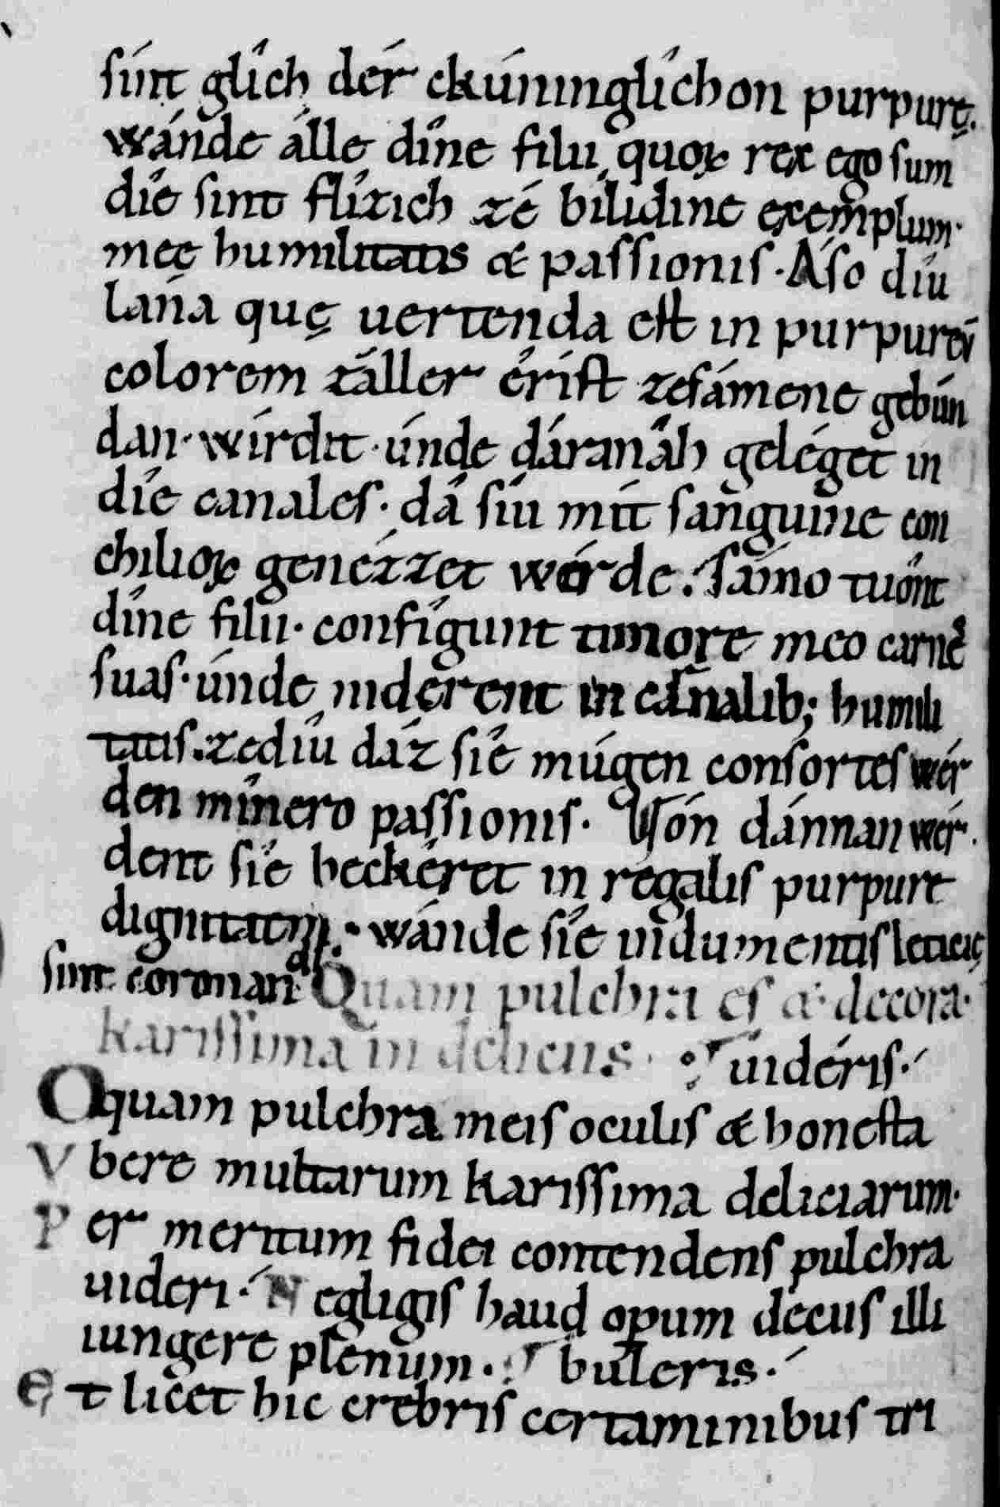 sínt glı́ch dér ckúninglı́chon purpurę.
wánde álle dîne filii quoꝝ rex ego sum
díe sint flı́zich zé bílidine exemplum·
meę humilitatis & passionis· Áso díu
lana quę uertenda est in purpureū
colorem záller êrist zesámene gebún
dan· wírdit· únde dáranâh geléget in
díe canales· dâ síu mit sanguine con
chilioꝝ genézzet wérde. Sámo tûont
dîne filii· configunt timore meo carnē
suas· únde inderent in canalib; humili
tatis. zedíu dáz síe múgen consortes wér
den mînero passionis· Uón dánnan wér
dent síe beckêret in regalis purpure
dignitatem. wánde síe indumentis leticię
sint coronandi Quam pulchra es & decora·
karissima in deliciis· uidéris·
O quam pulchra meis oculis & honesta
V bere multarum karissima deliciarum·
P er meritum fidei contendens pulchra
uideri· Negligis haud opum decus illi
iungere plenum. buleris·
E t licet hic crebris certaminibus tri